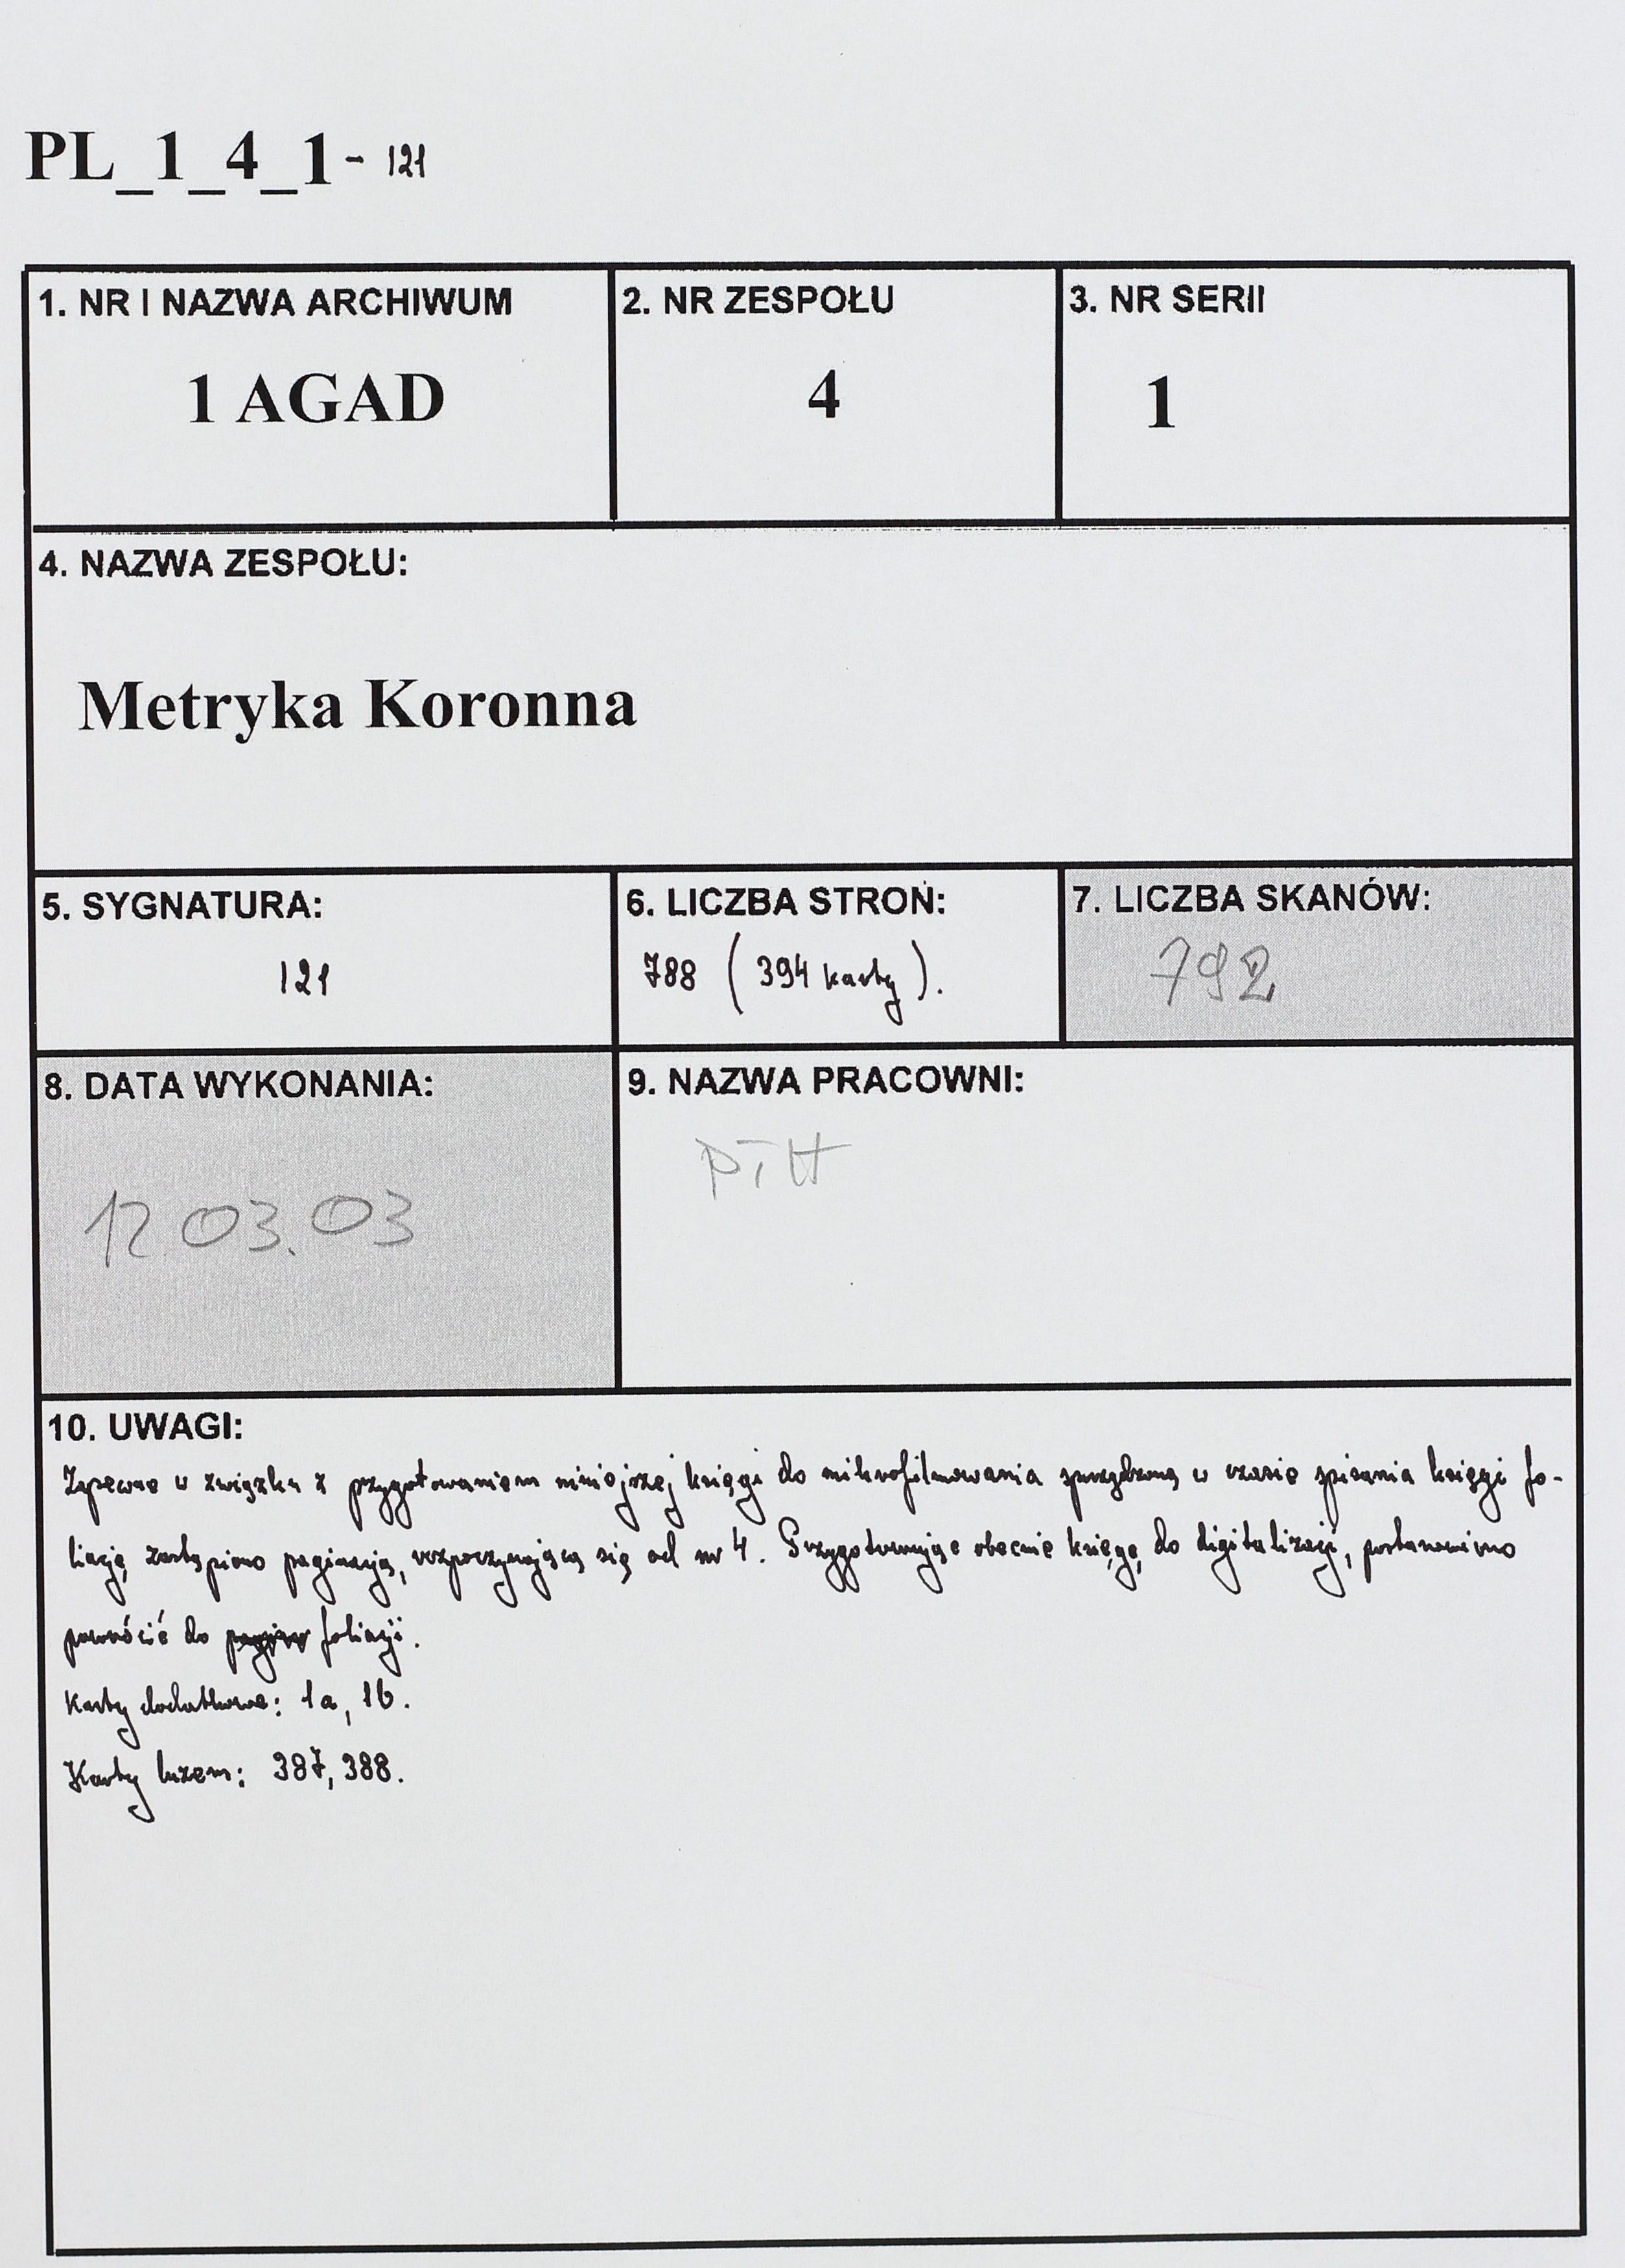 PL_1_4_1 - 121
1. NR I NAZWA ARCHIWUM
1 AGAD
2. NR ZESPOŁU
4
3. NR SERII
1
4. NAZWA ZESPOŁU:
Metryka Koronna
5. SYGNATURA:
121
6. LICZBA STRON:
788 (394 karty).
7. LICZBA SKANÓW:
792
8. DATA WYKONANIA:
12.03.03
9. NAZWA PRACOWNI:
10. UWAGI:
Zapewne w związku z przygotowaniem niniejszej księgi do mikrofilmowania sporządzoną w czasie spisania księgi fo-
liację zastąpiono paginacją, rozpoczynającą się od nr 4. Przygotowując obecnie księgę do digitalizacji, postanowiono
powrócić do pagin foliacji.
Karty dodatkowe: 1a, 1b.
Karty luzem: 387, 388.